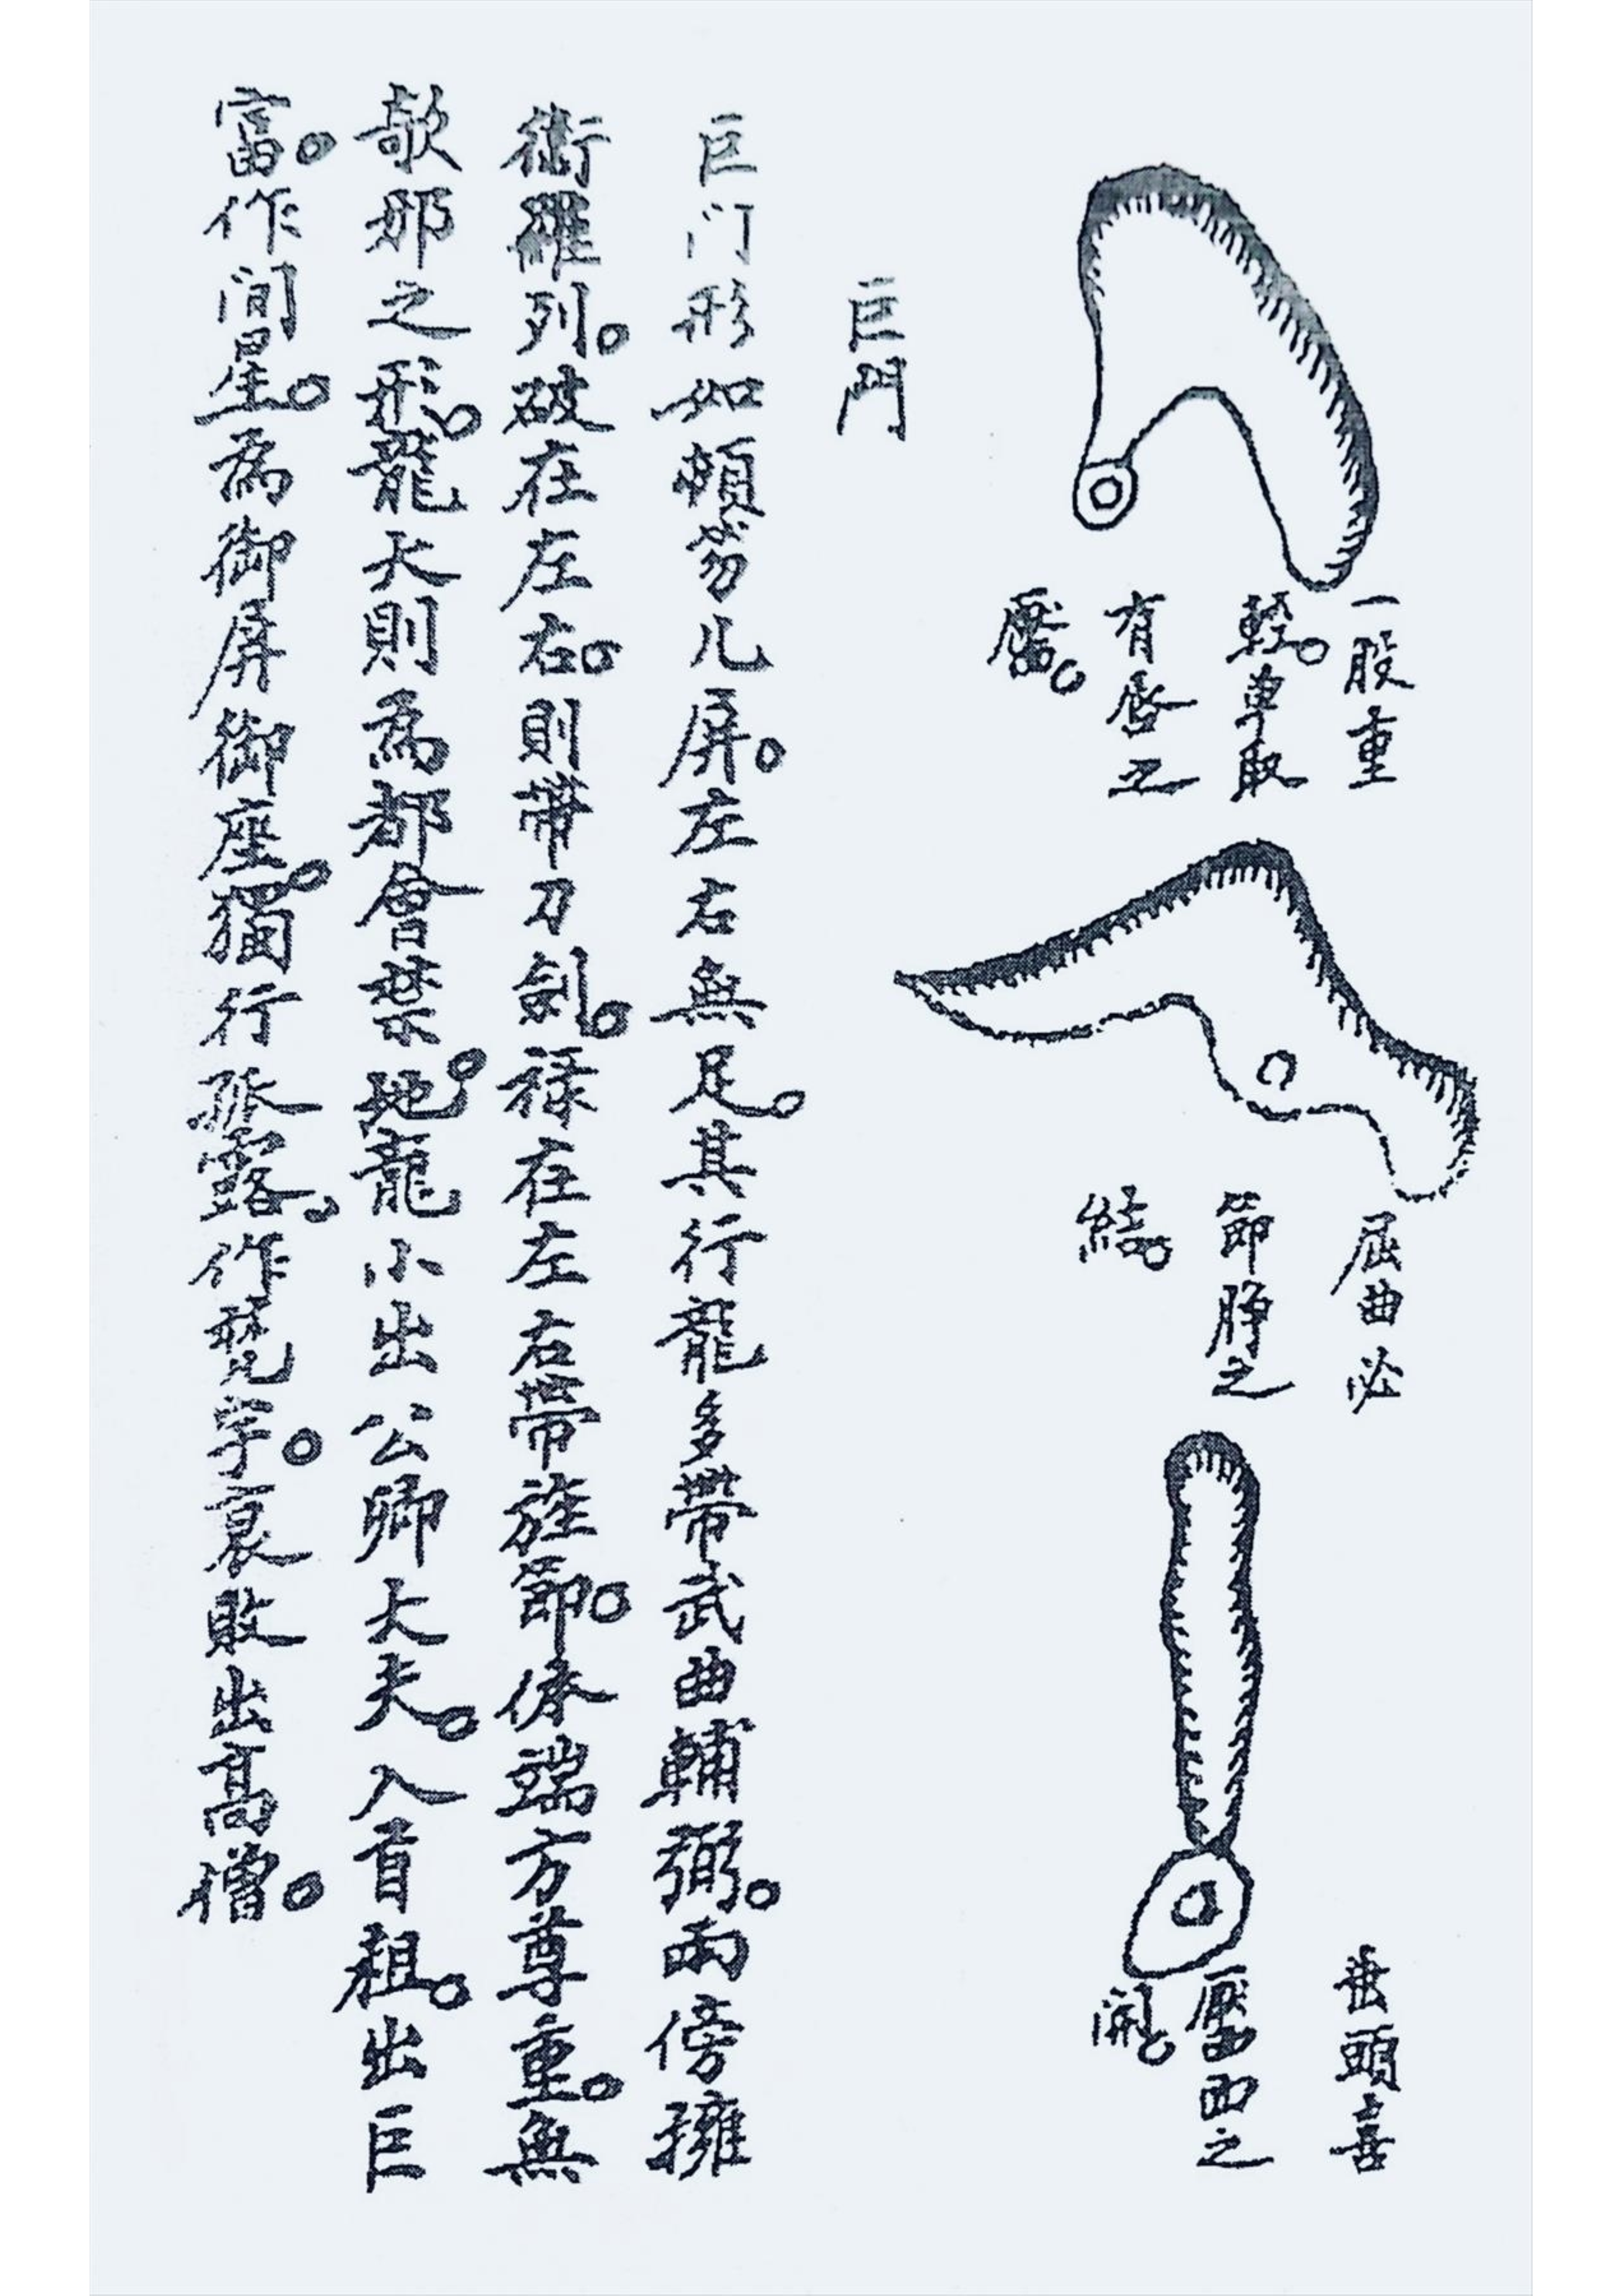 一股重
輕。单取
有唇之
靨。
屈曲必
節脖之
結。
垂頭喜
靨面之
開。
巨門
巨门形如頓笏儿屏。左右無足。其行龍多帶武曲輔弼。兩傍擁
衛羅列。破在左右。則帶刀劍。祿在左右帶旌節。俻端方尊重。無
欹邪之形。龍大則為都會禁地。龍小出公卿大夫。入首粗。出巨
富。作间星。為御屏御座。獨行孤露。作梵宇。衰敗出高僧。